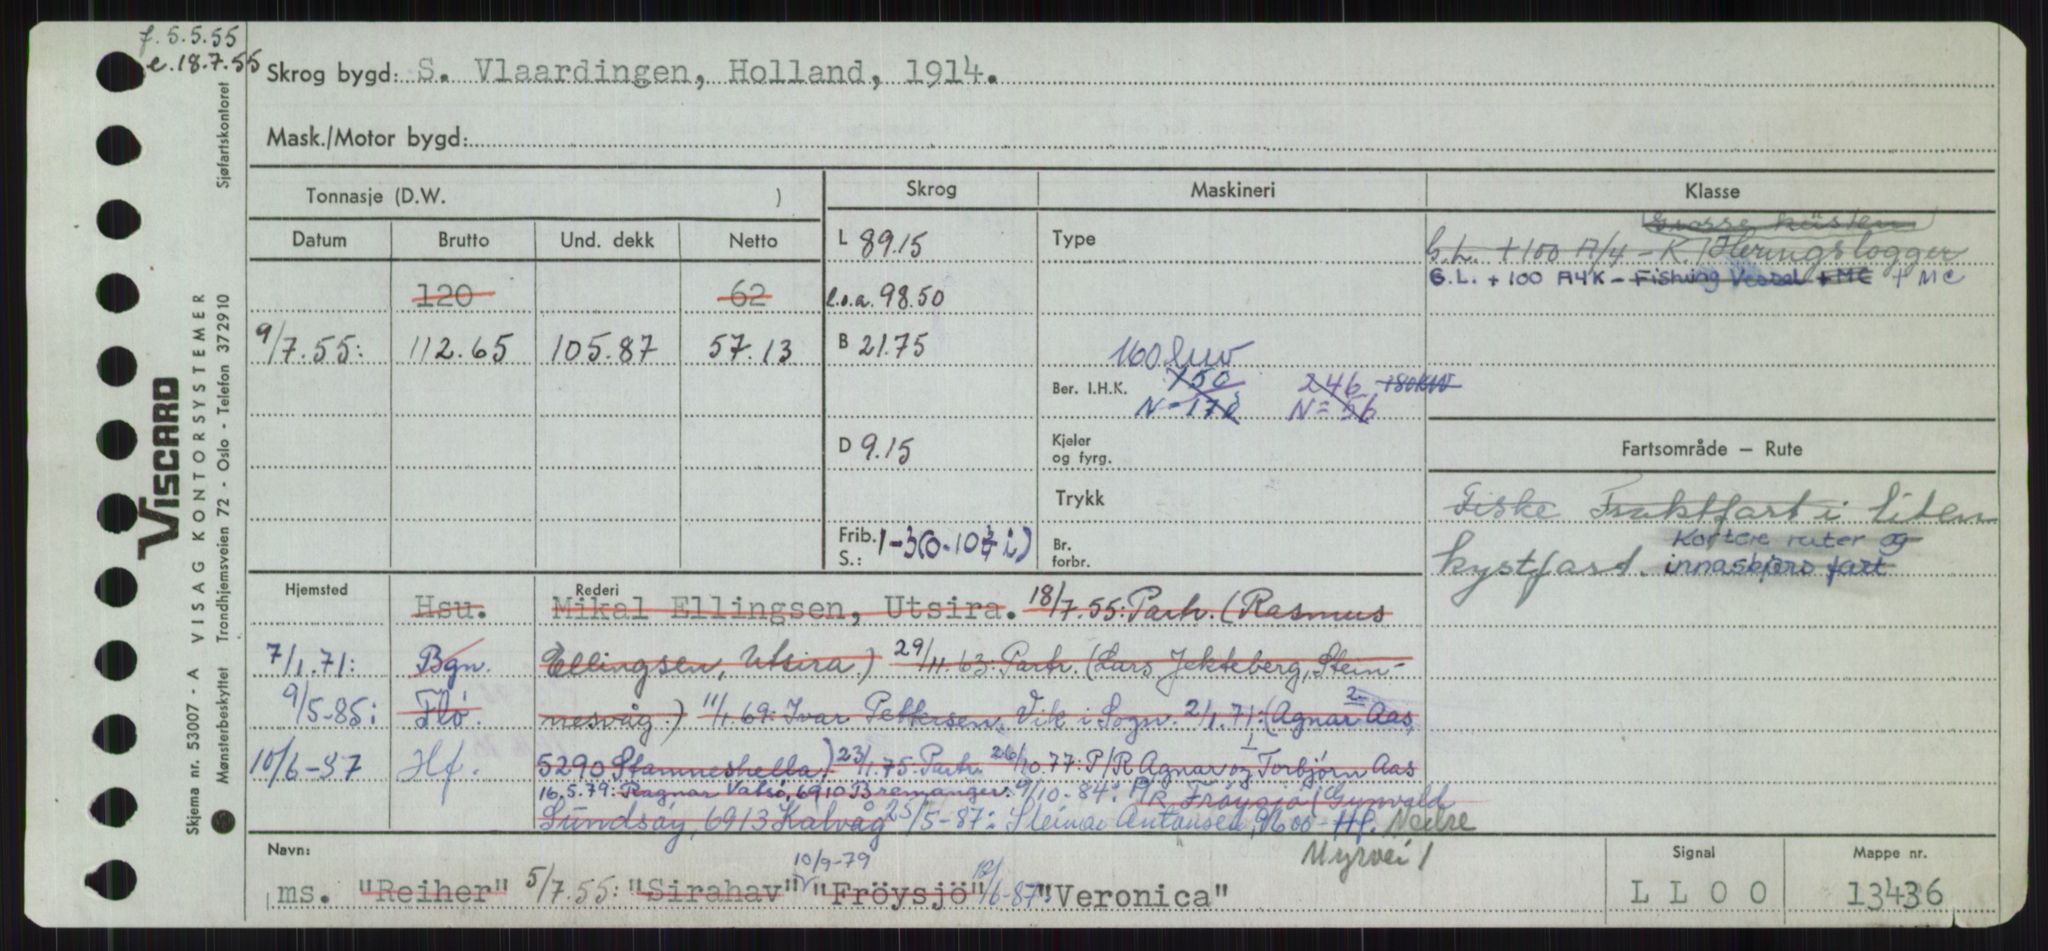 f. 5.5.55
e. 18.7.55
Skrog bygd: S. Vlaardingen, Holland, 1914.
Mask./Motor bygd:
Tonnasje (D.W. )
Skrog
Maskineri
Klasse
Datum Brutto Und. dekk Netto
L 89.15
Type
G.L. +100 A/4 - K. Heringslogger
120 62
l.o.a. 98.50
G.L. + 100 A4K - Fishing Vessel + MC + MC
9/7.55: 112.65 105.87 57.13
B 21.75
Ber. I.H.K.
150 246 180KW
N = 56
D 9.15
Kjeler og fyrg.
Fartsområde — Rute
Trykk
Fiske Fraktfart i liten
Frib. S.: 1-3(0-10¾ i)
Br. forbr.
Kortere ruter og
kystfart. innaskjærs fart
Hjemsted
Rederi
Hsu. Mikal Ellingsen, Utsira. 18/7.55: Partr. (Rasmus
7/1.71: Bgn. Ellingsen, Utsira.) 29/11.63: Partr. (Lars Jekteberg, Stein-
9/5-85: Flo. nesvåg.) 11/1.69: Ivar Pettersen, Vik i Sogn. 2/1.71: (Agnar Aas,
10/6-87 Hf. 5290 Stamneshella) 23/1.75: Partr. 26/10.77: P/R Agnar og Torbjørn Aas
16.5.79: Ragnar Valsø, 6910 Bremanger. 9/10-84: P/R Fröysjö (Gunvald
Sundsøy, 6913 Kalvåg 25/5-87: Steinar Antonsen, Nedre
Myrvei 1
Navn:
10/9-79
ms. "Reiher" 5/7.55: "Sirahav" "Fröysjö" 10/6-87: "Veronica"
Signal
LLOO
Mappe nr.
13436
VISCARD
VISAG KONTORSYSTEMER
Skjema nr. 53007 - A
Mønsterbeskyttet Trondhjemsveien 72 - Oslo - Telefon 372910 Sjøfartskontoret